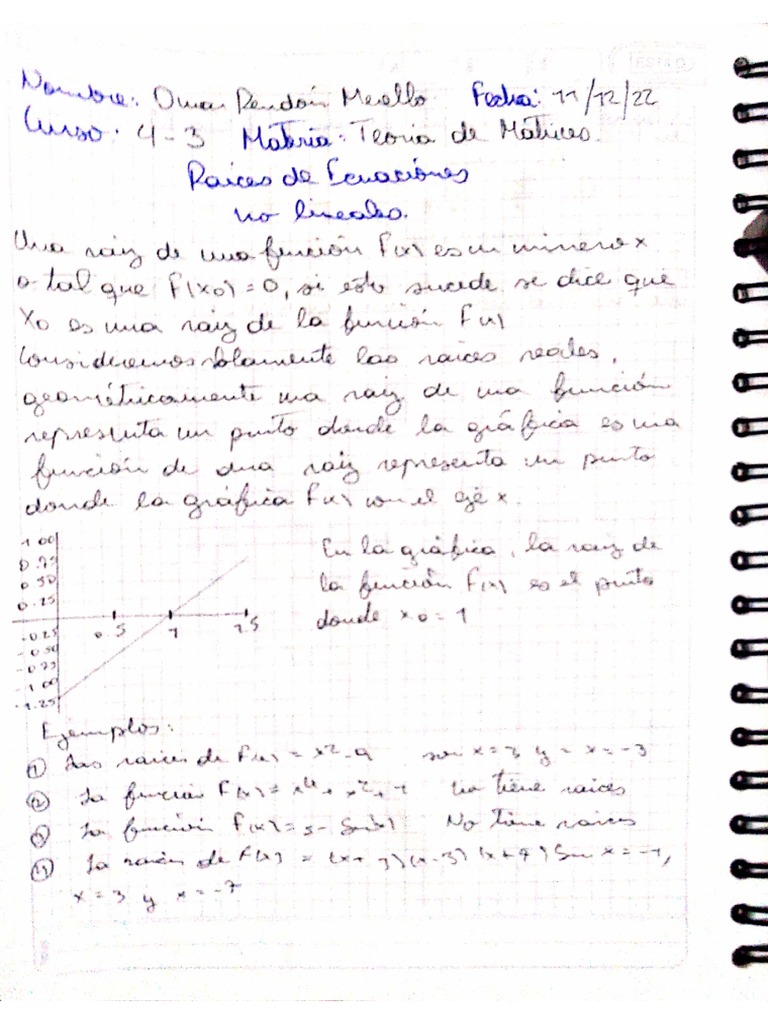 Nombre: Omar Rendón Merello Fecha: 11/12/22
Curso: 4-3 Materia: Teoria de Matrices.
Raices de Ecuaciones
no lineales.
Una raiz de una función F(x) es un número x
o tal que F(x0) = 0, si esto sucede se dice que
X0 es una raiz de la función F(x)
Consideremos solamente las raices reales,
geométricamente una raiz de una función
representa un punto donde la gráfica es una
función de una raiz representa un punto
donde la gráfica F(x) con el eje x.
1 00
0.75
0 50
0.25
-0 25
-0 50
-0 75
-1 00
-1.25
0.5 1 1.5
En la gráfica, la raiz de
la función F(x) es el punto
donde x0 = 1
Ejemplos:
① Las raices de F(x) = x²-9 son x=3 y = x=-3
② La función F(x) = x⁴+x²+1 No tiene raices
③ La función F(x) = 5 - Sen(x) No tiene raices
④ La raices de F(x) = (x+1)(x-3)(x+7) Son x=-1,
x=3 y x=-7